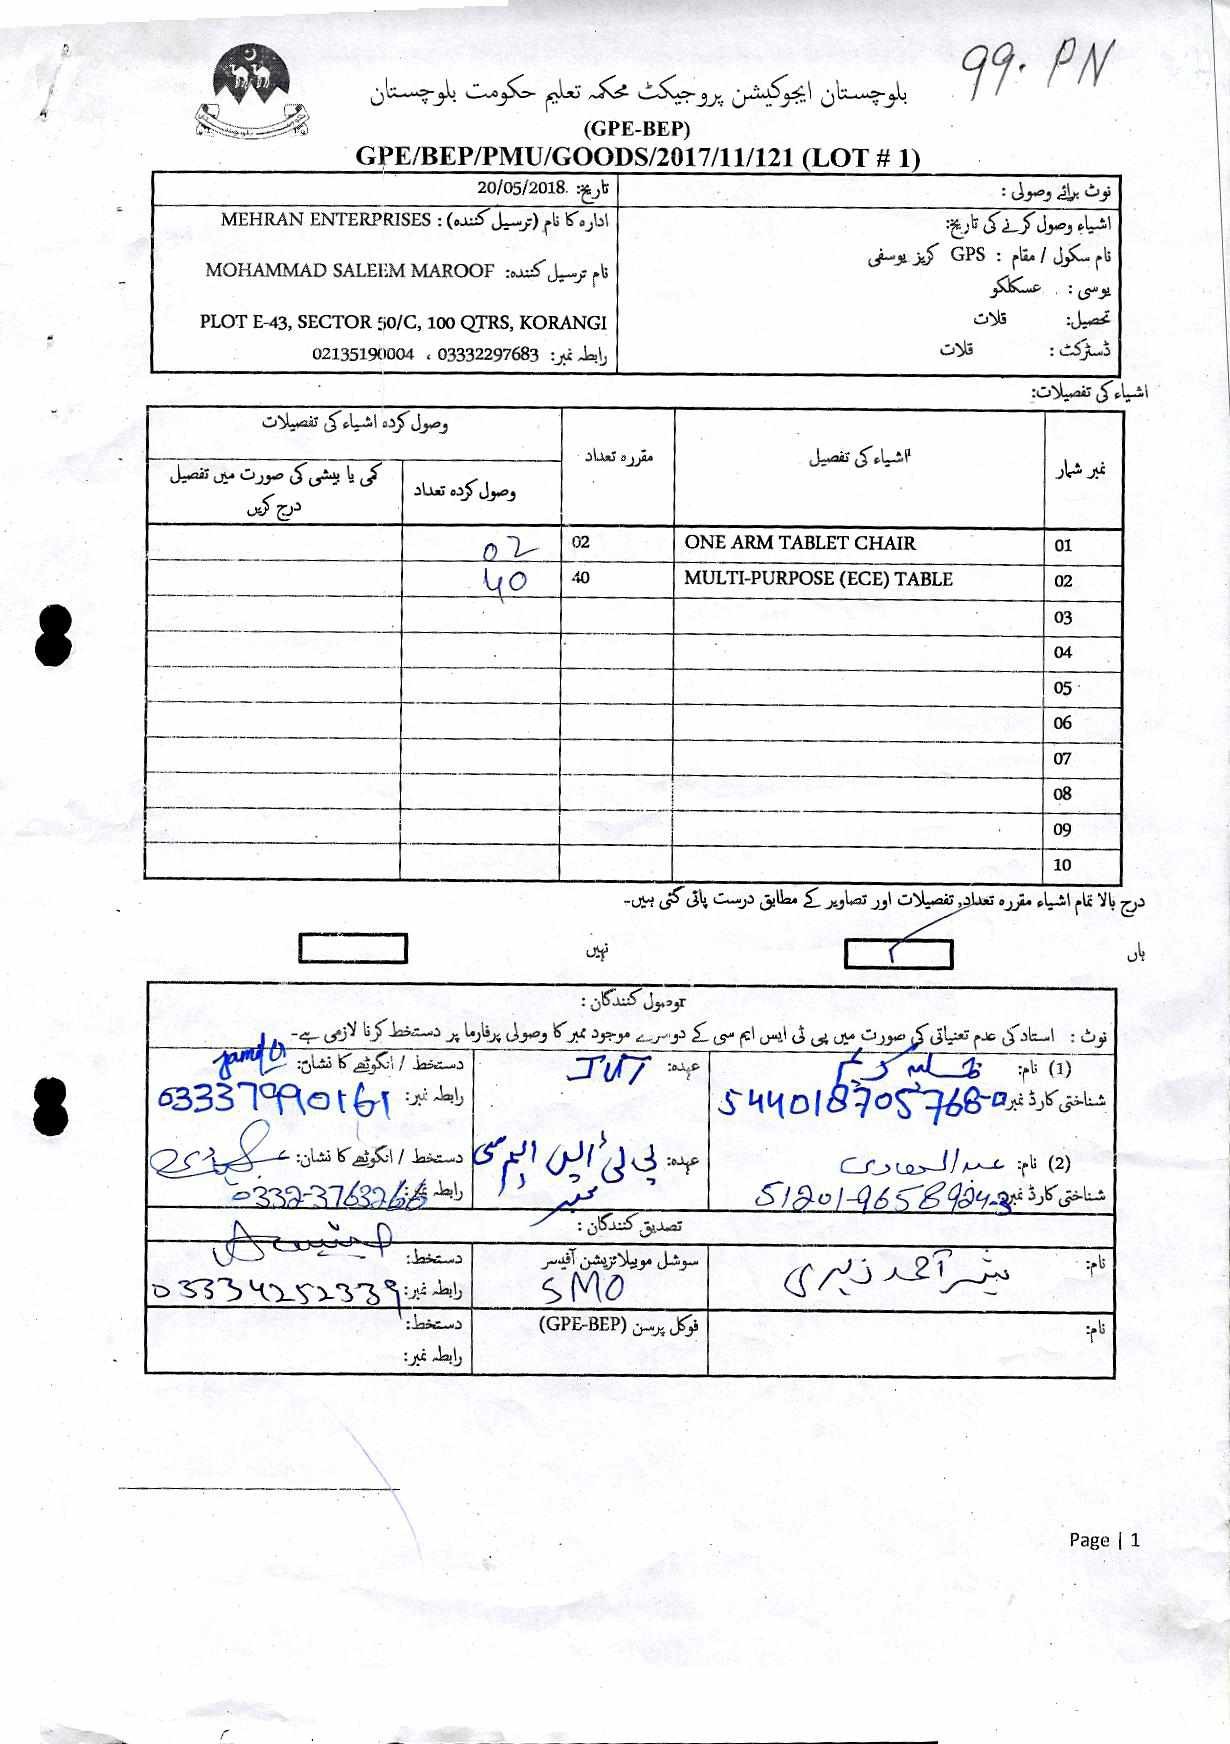 99. PN
بلوچستان ایجوکیشن پروجیکٹ محکمہ تعلیم حکومت بلوچستان
(GPE-BEP)
GPE/BEP/PMU/GOODS/2017/11/121 (LOT # 1)
نوٹ برائے وصولی :
تاریخ: 20/05/2018
اشیاء وصول کرنے کی تاریخ:
ادارہ کا نام (ترسیل کنندہ) : MEHRAN ENTERPRISES
نام سکول / مقام : GPS کریز یوسفی
نام ترسیل کنندہ: MOHAMMAD SALEEM MAROOF
یوسی : عسکلکو
تحصیل: قلات
PLOT E-43, SECTOR 50/C, 100 QTRS, KORANGI
ڈسٹرکٹ : قلات
رابطہ نمبر: 03332297683 ، 02135190004
اشیاء کی تفصیلات:
نمبر شمار
اشیاء کی تفصیل
مقررہ تعداد
وصول کردہ اشیاء کی تفصیلات
وصول کردہ تعداد
کمی یا بیشی کی صورت میں تفصیل درج کریں
01 ONE ARM TABLET CHAIR 02 02
02 MULTI-PURPOSE (ECE) TABLE 40 40
03
04
05
06
07
08
09
10
درج بالا تمام اشیاء مقررہ تعداد, تفصیلات اور تصاویر کے مطابق درست پائی گئی ہیں۔
ہاں
نہیں
وصول کنندگان :
نوٹ : استاد کی عدم تعیناتی کی صورت میں پی ٹی ایس ایم سی کے دوسرے موجود ممبر کا وصولی پرفارما پر دستخط کرنا لازمی ہے۔
(1) نام:
عہدہ: JVT
دستخط / انگوٹھے کا نشان:
شناختی کارڈ نمبر: 544018705768-0
رابطہ نمبر: 03337990161
(2) نام:
عہدہ: پی ٹی ایس ایم سی ممبر
دستخط / انگوٹھے کا نشان:
شناختی کارڈ نمبر: 51201-9658924-3
رابطہ نمبر: 0332-3763266
تصدیق کنندگان :
نام: بشیر احمد زہری
سوشل موبیلائزیشن آفیسر
SMO
دستخط:
رابطہ نمبر: 03334252339
نام:
فوکل پرسن (GPE-BEP)
دستخط:
رابطہ نمبر:
Page | 1